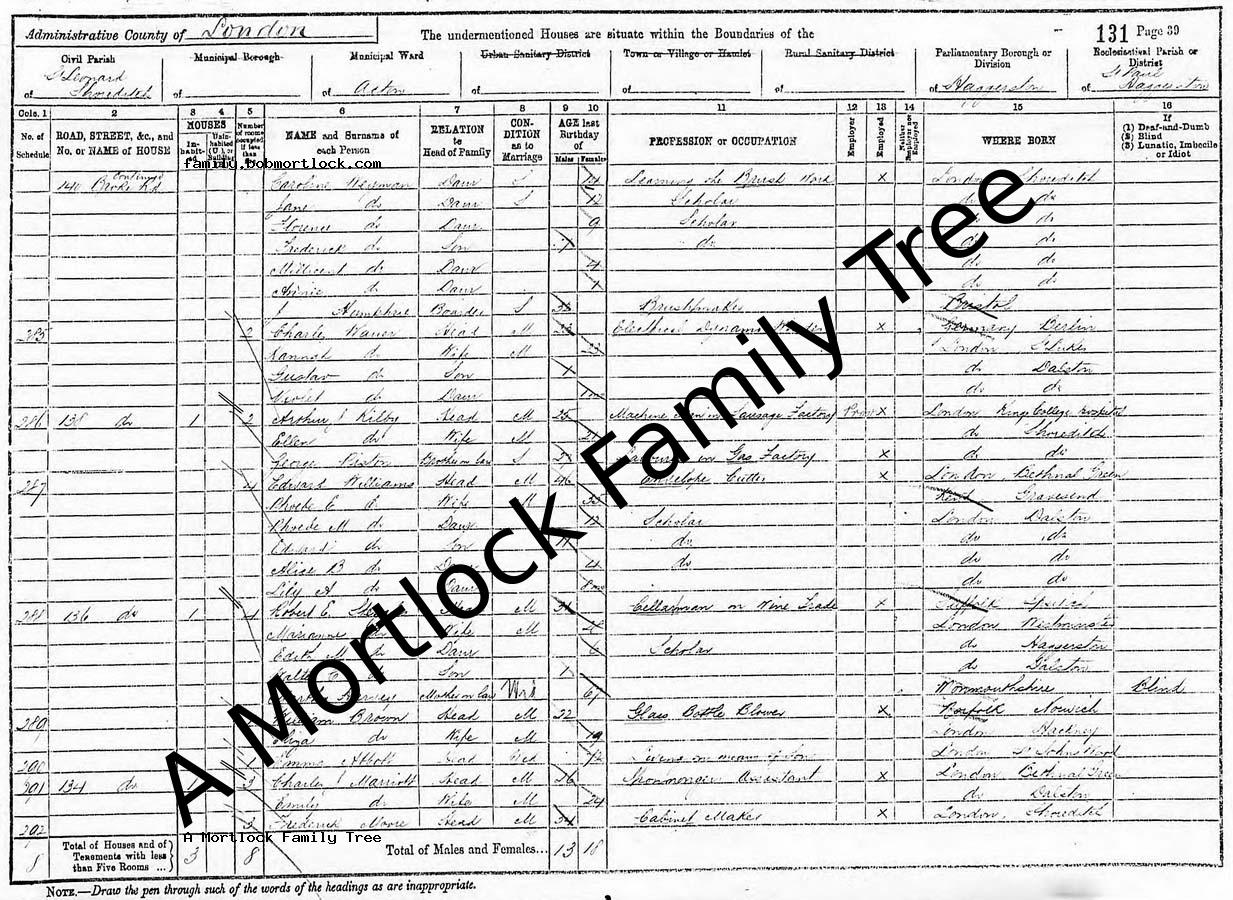 Administrative County of London
The undermentioned Houses are situate within the Boundaries of the
131 Page 39
Civil Parish
of St Leonard Shoreditch
Municipal Borough
of
Municipal Ward
of Acton
Urban Sanitary District
of
Town or Village or Hamlet
of
Rural Sanitary District
of
Parliamentary Borough or Division
of Haggerston
Ecclesiastical Parish or District
of St Paul Haggerston
Cols. 1 2 3 4 5 6 7 8 9 10 11 12 13 14 15 16
No. of Schedule
ROAD, STREET, &c., and No. or NAME of HOUSE
HOUSES
In-habit-ed
Unin-habited (U.), or Building (B.)
Number of rooms occupied if less than five
NAME and Surname of each Person
RELATION to Head of Family
CON-DITION as to Marriage
AGE last Birthday of
Males Females
PROFESSION or OCCUPATION
Employer
Employed
Neither Employer nor Employed
WHERE BORN
If (1) Deaf-and-Dumb (2) Blind (3) Lunatic, Imbecile or Idiot
family.bobmortlock.com
140 Broke Rd continued Caroline Daur S 14 Learning the Brush Work x London Shoreditch
Jane do Daur S 12 Scholar do do
Florence do Daur 9 Scholar do do
Frederick do Son 7 do do do
Millicent do Daur 4 do do
Annie do Daur 1 do do
Humphrie Boarder S Brushmaker Bristol
285 2 Charles Head M Electrical Dynamo x Germany Berlin
Hannah do Wife M 23 London St Lukes
Gustav do Son 1 do Dalston
Violet do Daur do do
286 138 do 1 2 Arthur J Kilby Head M 25 Machine Man in Sausage Factory x London Kings College Hospital
Ellen do Wife M do Shoreditch
George Brother in law S in Gas Factory x do do
287 4 Edward Williams Head M Envelope Cutter x London Bethnal Green
Phoebe E do Wife M Kent Gravesend
Phoebe M do Daur 12 Scholar London Dalston
Edward do Son 11 do do do
Alice B do Daur 4 do do do
Lily A do Daur do do
288 136 do 1 4 Robert E Head M Cellarman in Wine Trade x Suffolk
Marianne Wife M London Westminster
Edith M do Daur 6 Scholar do Haggerston
Walter Son 1 do Dalston
Mother in law Wid 61 Monmouthshire Blind
289 William Brown Head M 22 Glass Bottle Blower x Norfolk Norwich
Eliza do Wife M 19 London Hackney
290 Emma Abbott Head Wid London St Johns Wood
291 134 do 1 3 Charles J Marriott Head M 26 Ironmongers Assistant x London Bethnal Green
Emily do Wife M 24 do Dalston
292 3 Frederick Moore Head M 34 Cabinet Maker x London Shoreditch
A Mortlock Family Tree
8 Total of Houses and of Tenements with less than Five Rooms ... 3 8 Total of Males and Females... 13 18
NOTE.—Draw the pen through such of the words of the headings as are inappropriate.
A Mortlock Family Tree